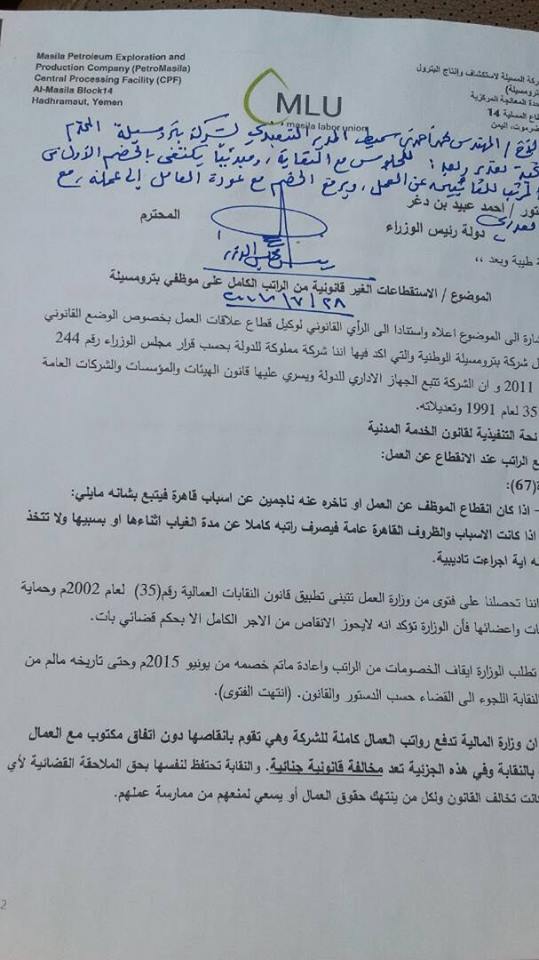 Masila Petroleum Exploration and
Production Company (PetroMasila)
Central Processing Facility (CPF)
Al-Masila Block14
Hadhramaut, Yemen
MLU
masila labor union
كة المسيلة لاستكشاف وإنتاج البترول
ترومسيلة)
دة المعالجة المركزية
ع المسيلة 14
ضرموت، اليمن
المهندس محمد أحمد بن سميط المدير التنفيذي لشركة بترومسيلة المحترم
تحية تقدير وبعد : للجلوس مع النقابة ، ومبدئياً يكتفى بالخصم الأول من
المرتب للغائبين عن العمل، ويرفع الخصم مع عودة العامل إلى عمله
تور / احمد عبيد بن دغر
دولة رئيس الوزراء
المحترم
ة طيبة وبعد ،،
رئيس مجلس الوزراء
الموضوع / الاستقطاعات الغير قانونية من الراتب الكامل على موظفي بترومسيلة
٢٠١٧/٧/٢٨
شارة الى الموضوع اعلاه واستنادا الى الرأي القانوني لوكيل قطاع علاقات العمل بخصوص الوضع القانوني
ل شركة بترومسيلة الوطنية والتي اكد فيها اننا شركة مملوكة للدولة بحسب قرار مجلس الوزراء رقم 244
2011 و ان الشركة تتبع الجهاز الاداري للدولة ويسري عليها قانون الهيئات والمؤسسات والشركات العامة
35 لعام 1991 وتعديلاته.
ئحة التنفيذية لقانون الخدمة المدنية
ع الراتب عند الانقطاع عن العمل:
ة(67):
- اذا كان انقطاع الموظف عن العمل او تاخره عنه ناجمين عن اسباب قاهرة فيتبع بشانه مايلي:
اذا كانت الاسباب والظروف القاهرة عامة فيصرف راتبه كاملا عن مدة الغياب اثناءها او بسببها ولا تتخذ
ه اية اجراءت تاديبية.
اننا تحصلنا على فتوى من وزارة العمل تتبنى تطبيق قانون النقابات العمالية رقم(35) لعام 2002م وحماية
ات واعضائها فأن الوزارة تؤكد انه لايجوز الانقاص من الاجر الكامل الا بحكم قضائي بات.
تطلب الوزارة ايقاف الخصومات من الراتب واعادة ماتم خصمه من يونيو 2015م وحتى تاريخه مالم من
النقابة اللجوء الى القضاء حسب الدستور والقانون. (انتهت الفتوى).
ان وزارة المالية تدفع رواتب العمال كاملة للشركة وهي تقوم بانقاصها دون اتفاق مكتوب مع العمال
بالنقابة وفي هذه الجزئية تعد مخالفة قانونية جنائية. والنقابة تحتفظ لنفسها بحق الملاحقة القضائية لأي
كانت تخالف القانون ولكل من ينتهك حقوق العمال أو يسعي لمنعهم من ممارسة عملهم.
2